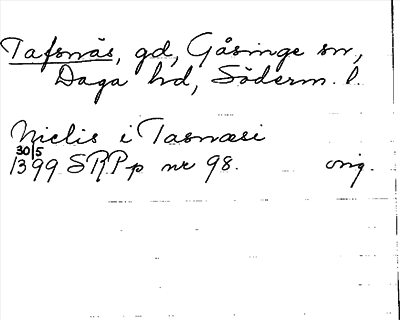 Tafsnäs, gd, Gåsinge sn,
Daga hd, Söderm. l.
Nielis i Tasnæsi
30/5
1399 SRPp nr 98. orig.